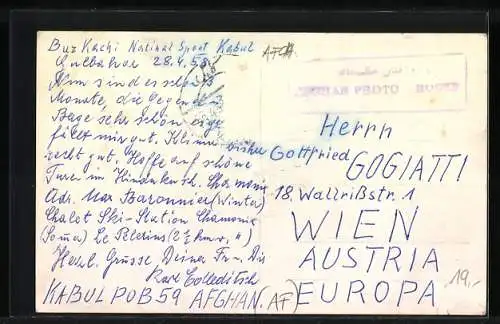 Buz Kachi National Sport Kabul
Gulbahar 28.4.58
Nun sind es schon 3
Monate, die Gegend
Lage sehr schön
gefällt mir gut. Klima bisher
recht gut. Hoffe auf schöne
Turen im Hindukusch. Chamonix
Adr. Max Baronnier (Winter)
Chalet Ski-Station Chamonix
(Somer) Le Pelerins (2½ km v. ")
Herzl. Grüsse Deiner Fr. u. Dir
Karl Colleditsch
KABUL POB 59 AFGHAN. (AF)
AFGH.
PHOTO HOUSE
Herrn
Gottfried
GOGIATTI
18. Wallrißstr. 1
WIEN
AUSTRIA
EUROPA
19,-